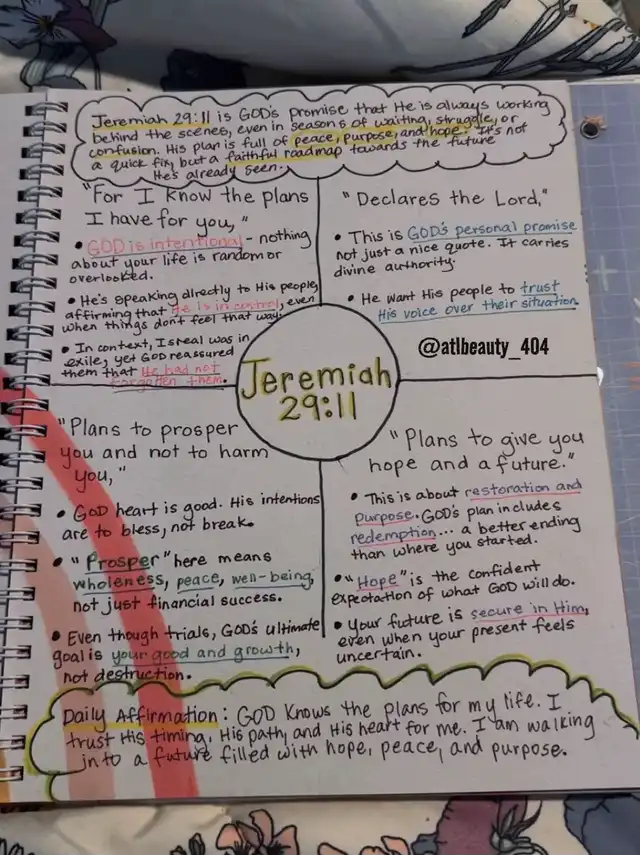 Jeremiah 29:11 is GOD'S Promise that He is always working
behind the scenes, even in seasons of waiting, struggle, or
confusion. His plan is full of peace, purpose, and hope. It's not
a quick fix, but a faithful roadmap towards the future
He's already seen.
"For I know the plans
I have for you,"
• GOD is intentional - nothing
about your life is random or
overlooked.
• He's speaking directly to His people,
affirming that He is in control, even
when things don't feel that way.
• In context, Isreal was in
exile, yet GOD reassured
them that He had not
forgotten them.
"Declares the Lord,"
• This is GOD'S personal promise
not just a nice quote. It carries
divine authority.
• He want His people to trust
His voice over their situation.
@atlbeauty_404
Jeremiah
29:11
"Plans to prosper
you and not to harm
you,"
• GOD heart is good. His intentions
are to bless, not break.
• "Prosper" here means
wholeness, peace, well-being,
not just financial success.
• Even though trials, GOD'S ultimate
goal is your good and growth,
not destruction.
"Plans to give you
hope and a future."
• This is about restoration and
purpose. GOD'S plan includes
redemption... a better ending
than where you started.
• "Hope" is the confident
expectation of what GOD will do.
• Your future is secure in Him,
even when your present feels
uncertain.
Daily Affirmation: GOD Knows the plans for my life. I
trust His timing, His path, and His heart for me. I am walking
in to a future filled with hope, peace, and purpose.